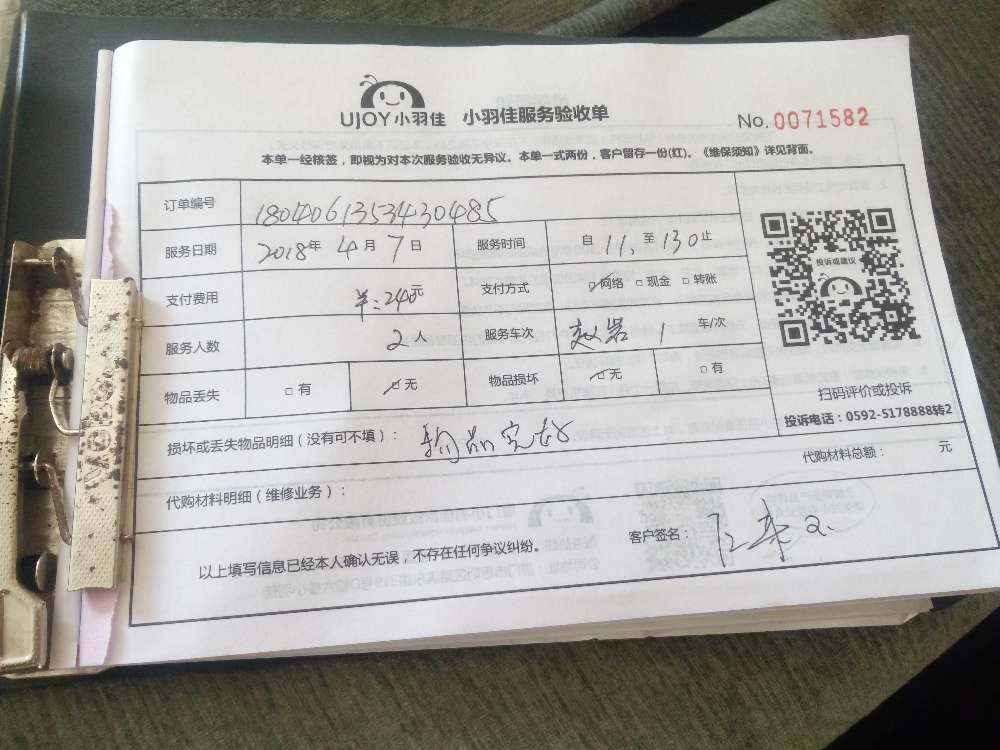 UJOY小羽佳 小羽佳服务验收单
No. 0071582
本单一经核签，即视为对本次服务验收无异议。本单一式两份，客户留存一份(红)。《维保须知》详见背面。
订单编号 1804061353430485
服务日期 2018年 4月 7日 服务时间 自 11. 至 130止
支付费用 240元 支付方式 网络 现金 转账
服务人数 2人 服务车次 1 车/次
物品丢失 有 无 物品损坏 无 有
投诉或建议
扫码评价或投诉
投诉电话：0592-5178888转2
损坏或丢失物品明细（没有可不填）： 物品完好
代购材料总额： 元
代购材料明细（维修业务）：
以上填写信息已经本人确认无误，不存在任何争议纠纷。
客户签名：